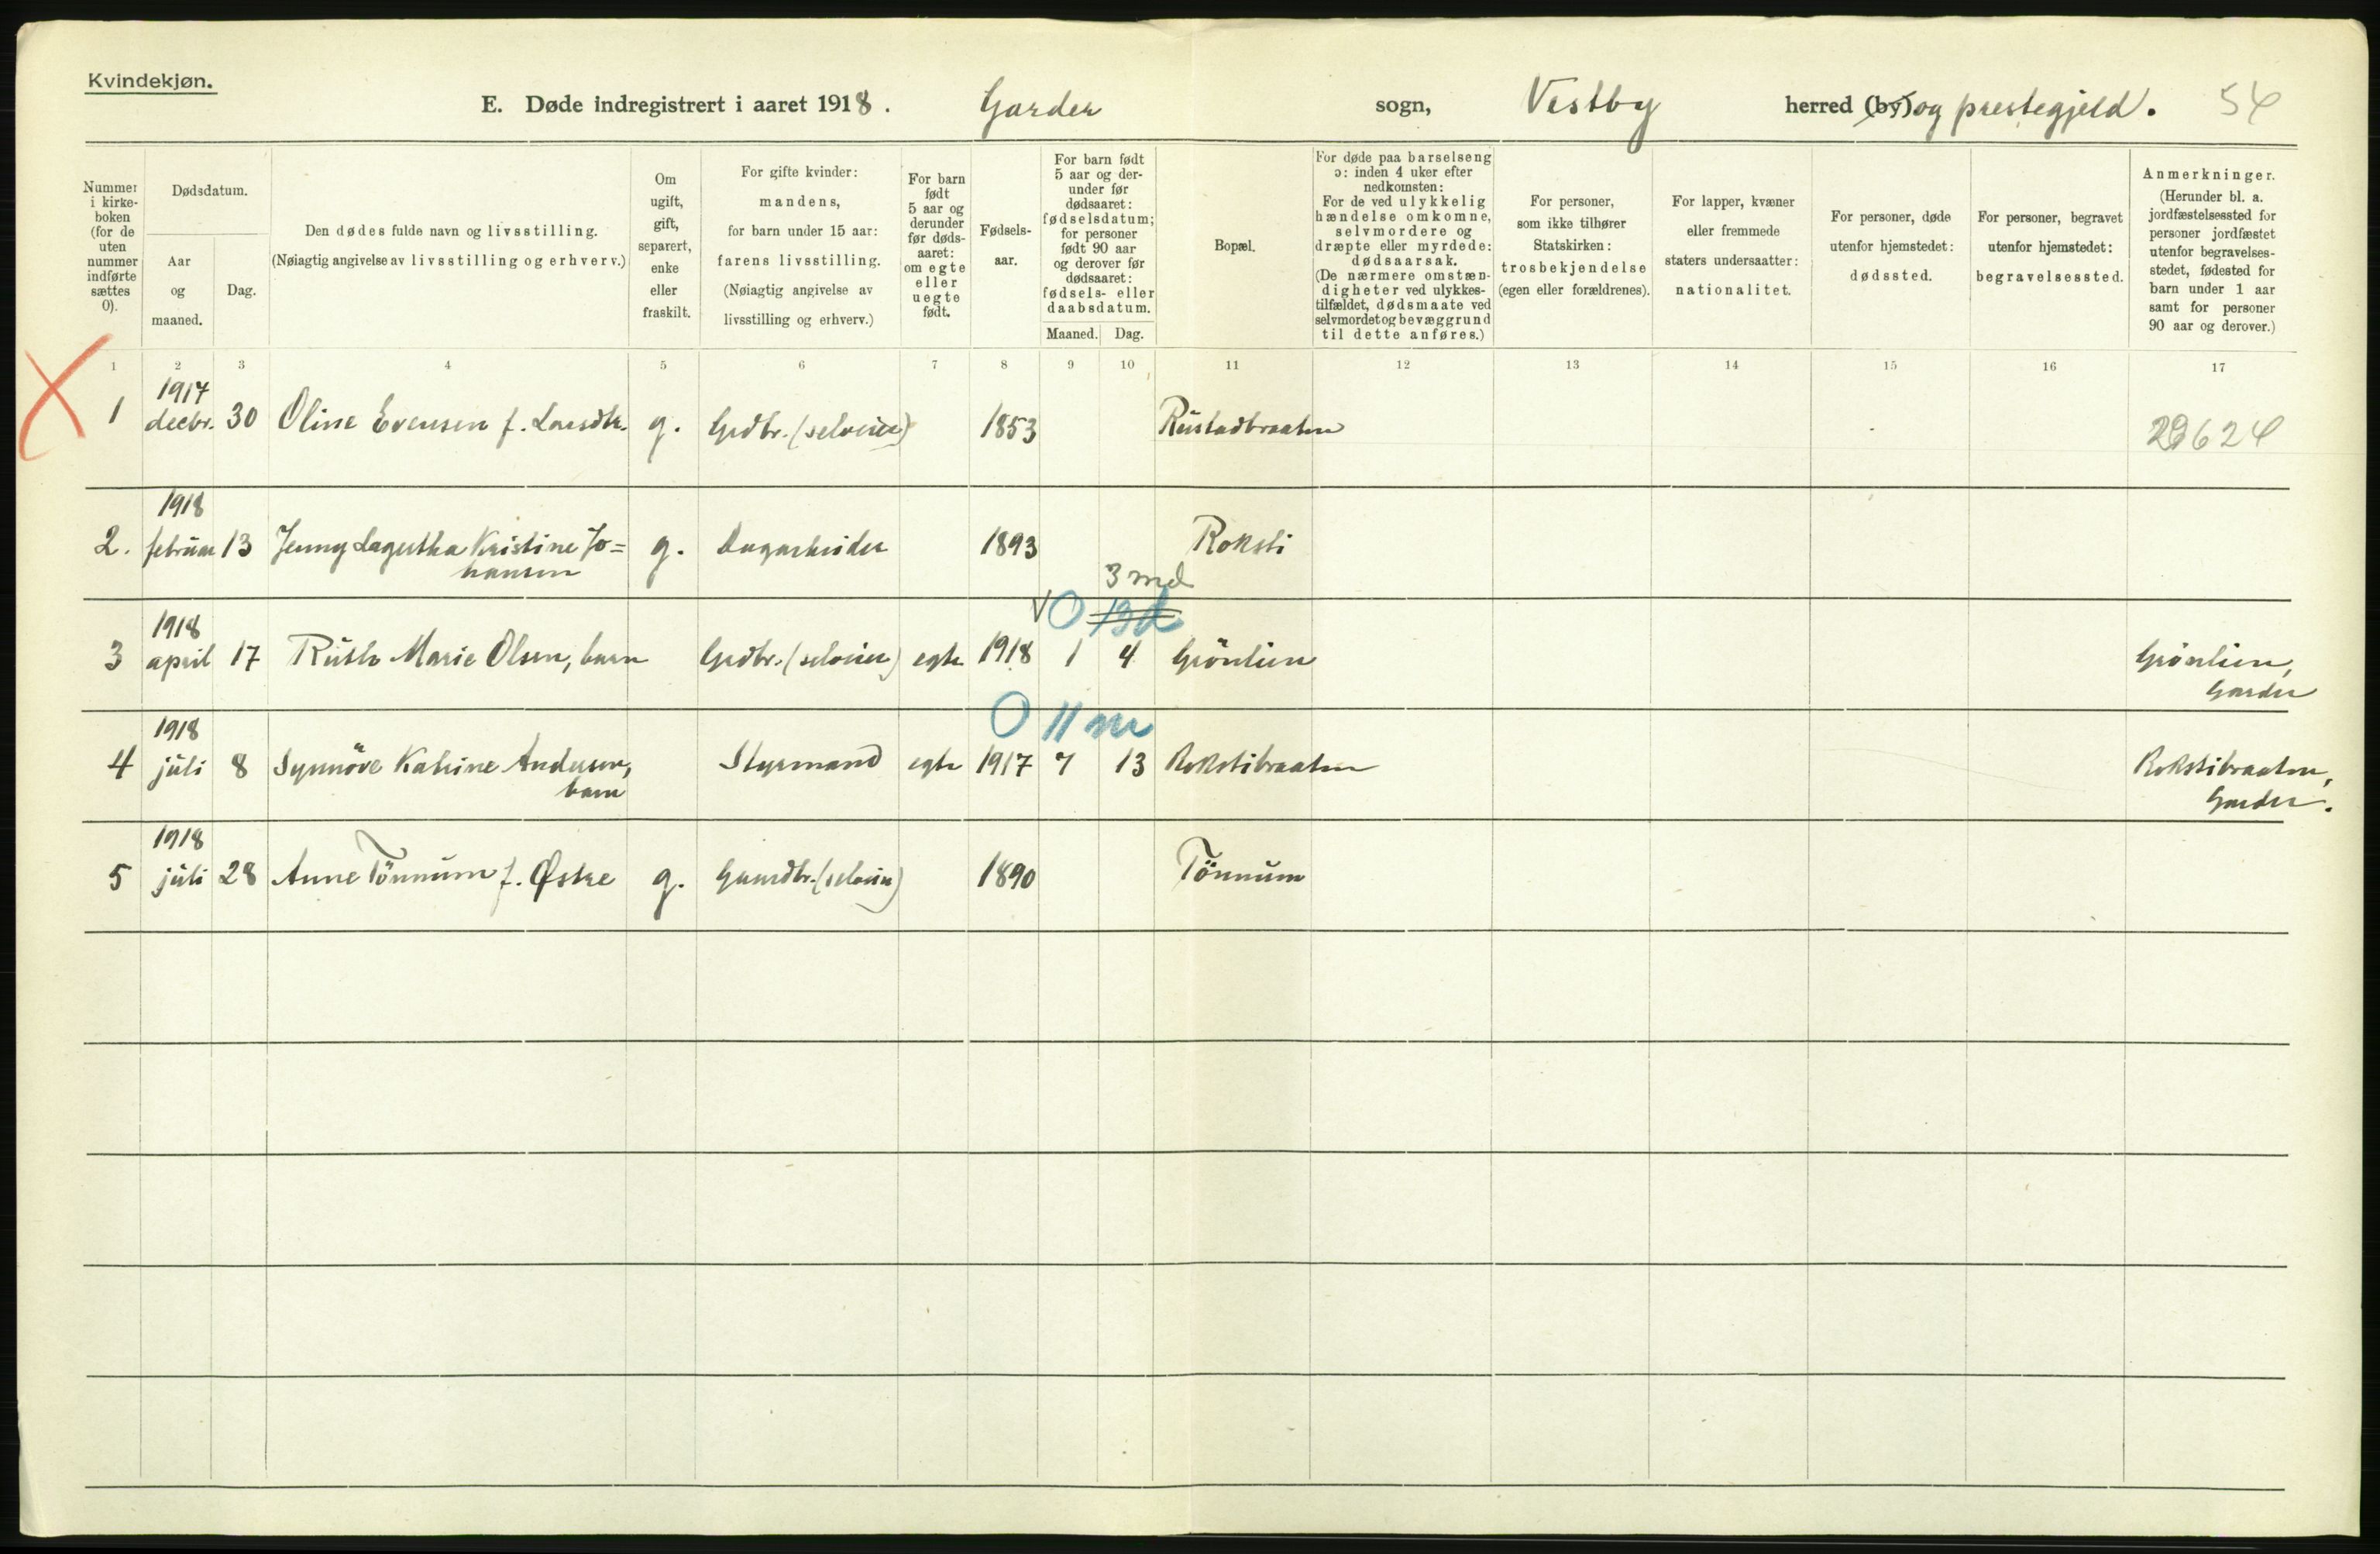 Kvindekjøn.
E. Døde indregistrert i aaret 1918. Garder sogn, Vestby herred (by) og prestegjeld. 54
Nummer i kirke-boken (for de uten nummer indførte sættes 0).
Dødsdatum.
Aar og maaned.
Dag.
Den dødes fulde navn og livsstilling.
(Nøiagtig angivelse av livsstilling og erhverv.)
Om ugift, gift, separert, enke eller fraskilt.
For gifte kvinder: mandens, for barn under 15 aar: farens livsstilling. (Nøiagtig angivelse av livsstilling og erhverv.)
For barn født 5 aar og derunder før døds-aaret: om egte eller uegte født.
Fødsels-aar.
For barn født 5 aar og der-under før dødsaaret: fødselsdatum; for personer født 90 aar og derover før dødsaaret: fødsels- eller daabsdatum.
Maaned. Dag.
Bopæl.
For døde paa barselseng ɔ: inden 4 uker efter nedkomsten: For de ved ulykkelig hændelse omkomne, selvmordere og dræpte eller myrdede: dødsaarsak. (De nærmere omstæn-digheter ved ulykkes-tilfældet, dødsmaate ved selvmordet og bevæggrund til dette anføres.)
For personer, som ikke tilhører Statskirken: trosbekjendelse (egen eller forældrenes).
For lapper, kvæner eller fremmede staters undersaatter: nationalitet.
For personer, døde utenfor hjemstedet: dødssted.
For personer, begravet utenfor hjemstedet: begravelsessted.
Anmerkninger. (Herunder bl. a. jordfæstelsessted for personer jordfæstet utenfor begravelses-stedet, fødested for barn under 1 aar samt for personer 90 aar og derover.)
1 2 3 4 5 6 7 8 9 10 11 12 13 14 15 16 17
1917
1 decbr. 30 Oline Evensen f. Larsdtr. g. Grdbr. (selveier) 1853 Rustadbraaten 29624
1918
2. februar 13 Jenny Lagertha Kristine Jo= g. Dagarbeider 1893 Roksti
hansen
3 md
V O 13 d
1918
3 april 17 Ruth Marie Olsen, barn Grdbr. (selveier) egte 1918 1 4 Grönlien Grönlien,
Garder
O 11 m
1918
4 juli 8 Synnöve Katrine Andersen, Styrmand egte 1917 7 13 Rokstibraaten Rokstibraaten,
barn Garder.
1918
5 juli 28 Anne Tönnum f. Østre g. Gaardbr. (selveier) 1890 Tönnum